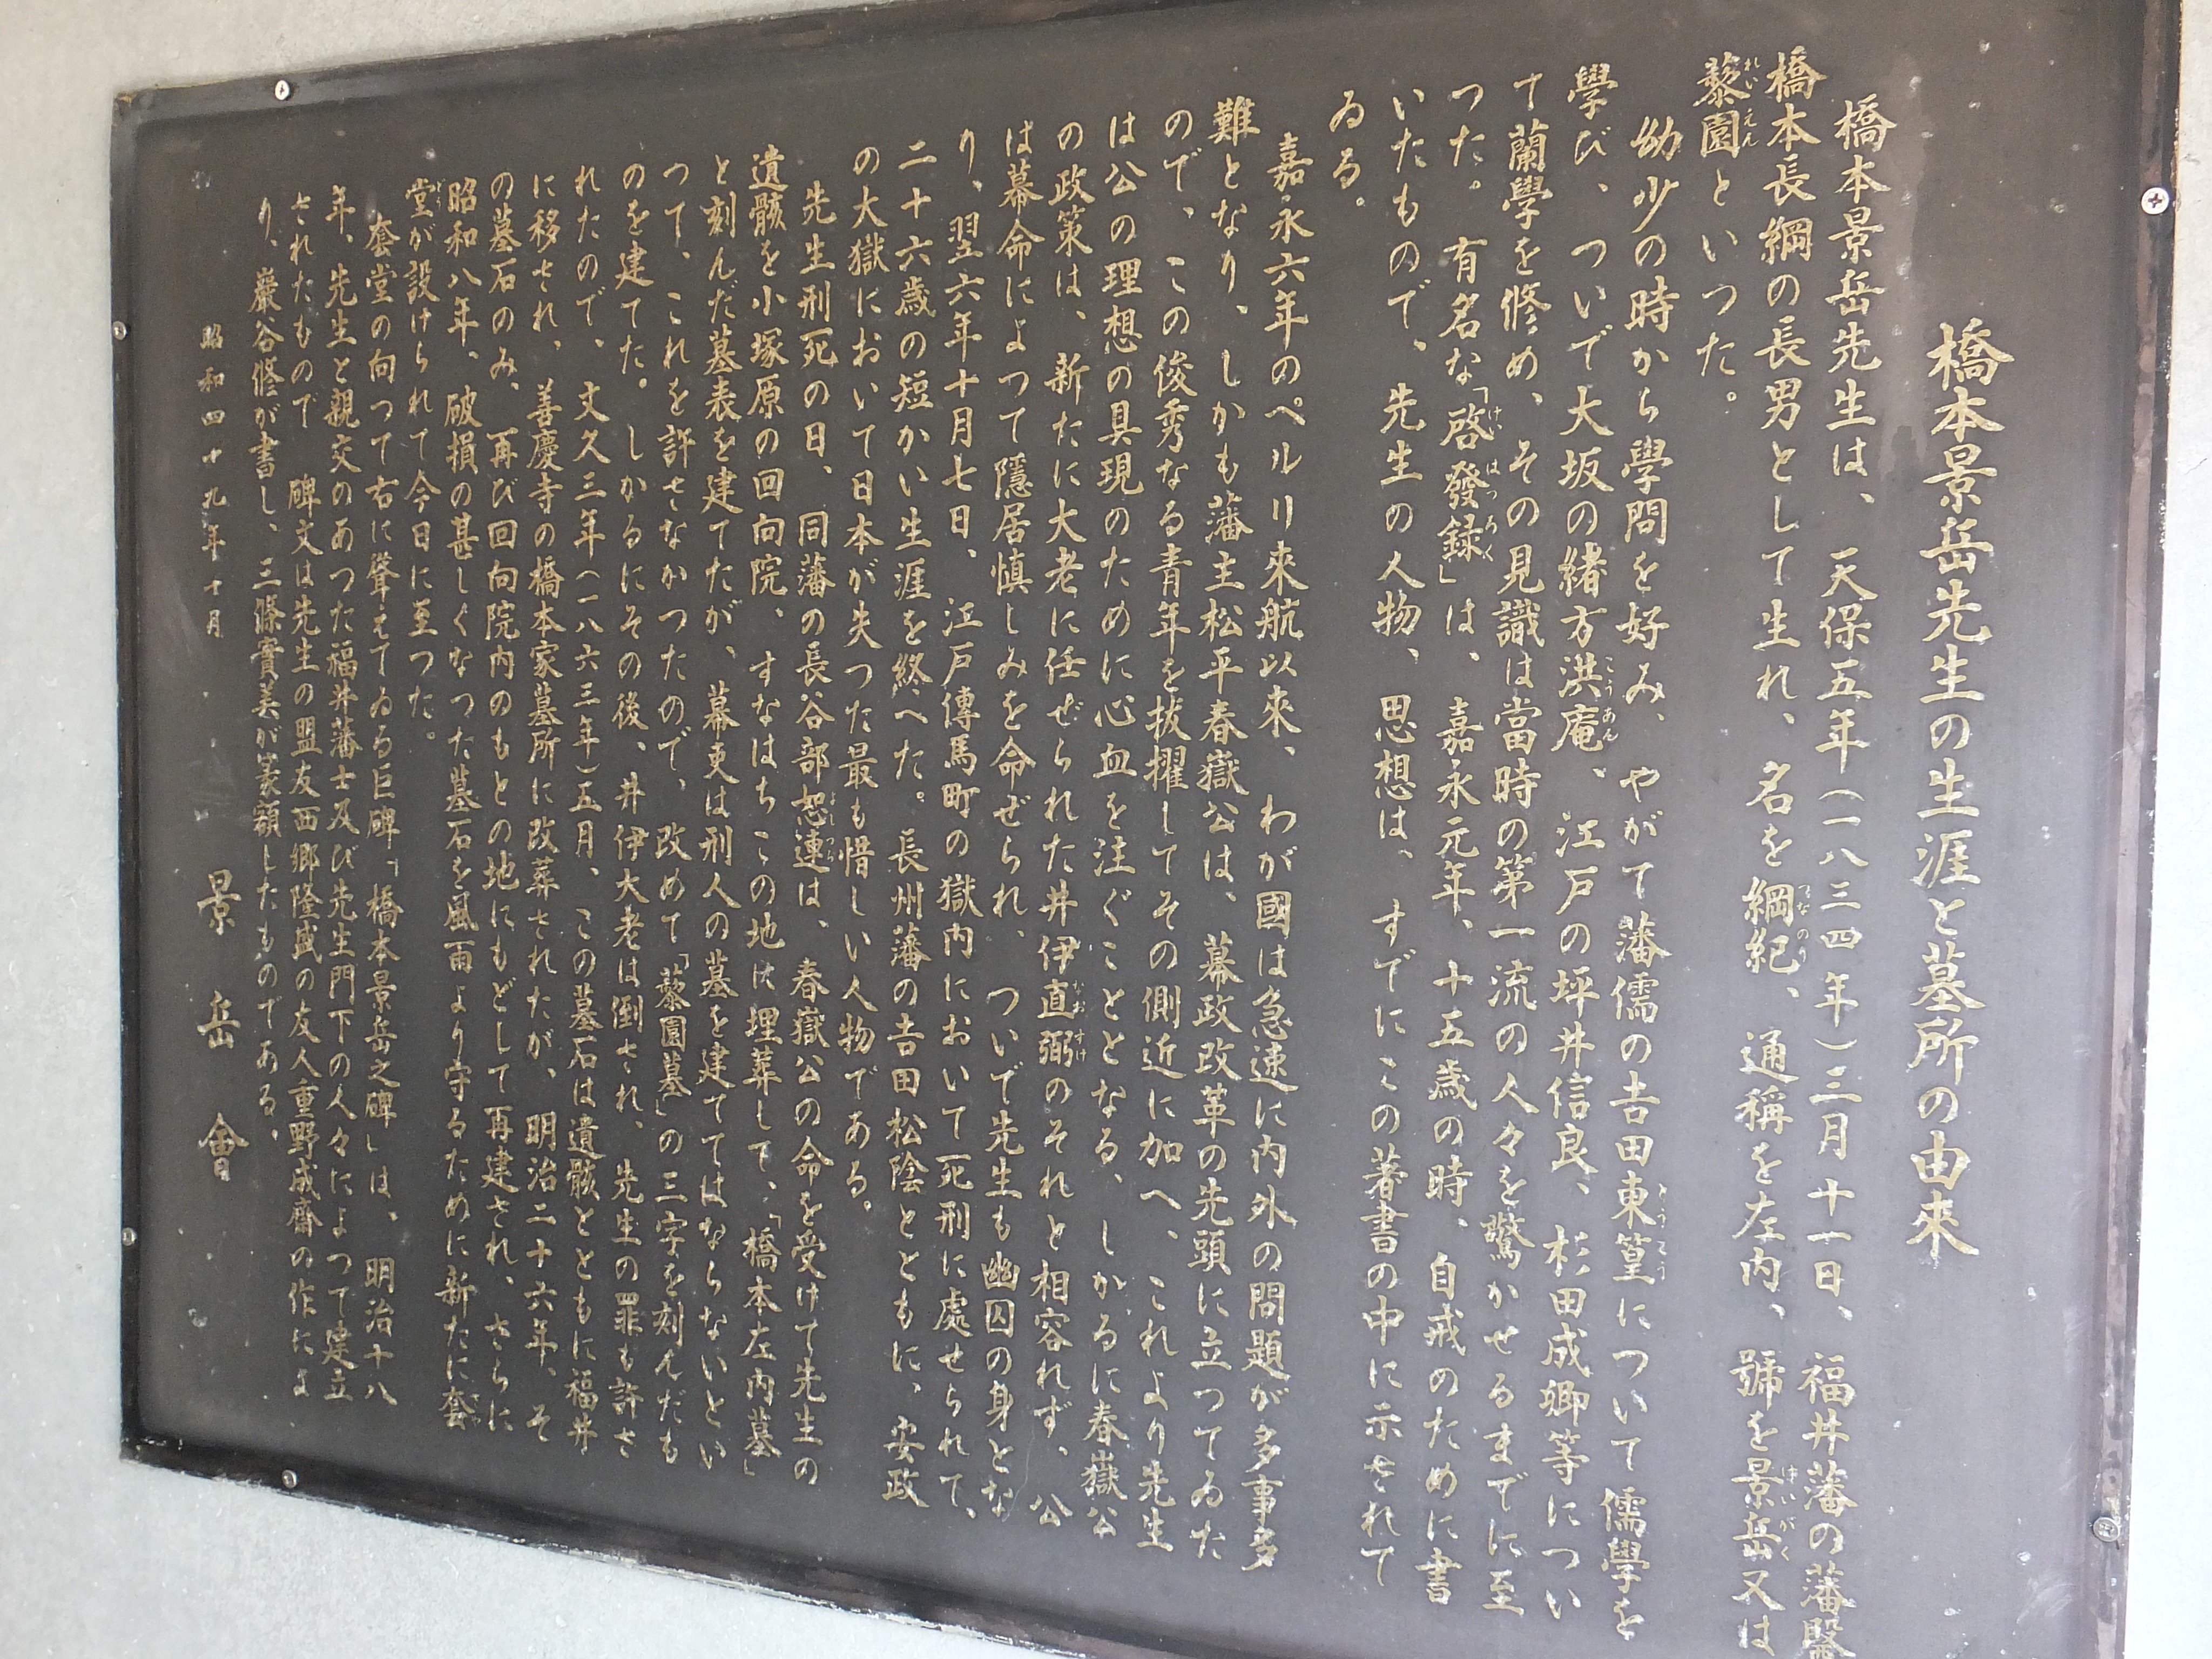 橋本景岳先生の生涯と墓所の由來
橋本景岳先生は、天保五年(一八三四年)三月十一日、福井藩の藩醫
橋本長綱の長男として生れ、名を綱紀、通稱を左内、號を景岳又は
つなのり
けいがく
藜園といつた。
れいえん
幼少の時から學問を好み、やがて藩儒の吉田東篁について儒學を
とうこう
學び、ついで大坂の緒方洪庵、江戸の坪井信良、杉田成卿等につい
こうあん
て蘭學を修め、その見識は當時の第一流の人々を驚かせるまでに至
つた。有名な「啓發録」は、嘉永元年、十五歳の時、自戒のために書
けいはつろく
いたもので、先生の人物、思想は、すでにこの著書の中に示されて
ゐる。
嘉永六年のペルリ來航以來、わが國は急速に内外の問題が多事多
難となり、しかも藩主松平春嶽公は、幕政改革の先頭に立つてゐた
ので、この俊秀なる青年を抜擢してその側近に加へ、これより先生
は公の理想の具現のために心血を注ぐこととなる、しかるに春嶽公
の政策は、新たに大老に任ぜられた井伊直弼のそれと相容れず、公
なおすけ
は幕命によつて隱居慎しみを命ぜられ、ついで先生も幽囚の身とな
り、翌六年十月七日、江戸傳馬町の獄内において死刑に處せられて、
二十六歳の短かい生涯を終へた。長州藩の吉田松陰とともに、安政
の大獄において日本が失つた最も惜しい人物である。
先生刑死の日、同藩の長谷部恕連は、春嶽公の命を受けて先生の
よしつら
遺骸を小塚原の回向院、すなはちこの地に埋葬して、「橋本左内墓」
と刻んだ墓表を建てたが、幕吏は刑人の墓を建ててはならないとい
つて、これを許さなかつたので、改めて「藜園墓」の三字を刻んだも
のを建てた。しかるにその後、井伊大老は倒され、先生の罪も許さ
れたので、文久三年(一八六三年)五月、この墓石は遺骸とともに福井
に移され、善慶寺の橋本家墓所に改葬されたが、明治二十六年、そ
の墓石のみ、再び回向院内のもとの地にもどして再建され、さらに
昭和八年、破損の甚しくなつた墓石を風雨より守るために新たに套
さや
堂が設けられて今日に至つた。
どう
套堂の向つて右に聳えてゐる巨碑「橋本景岳之碑」は、明治十八
年、先生と親交のあつた福井藩士及び先生門下の人々によつて建立
されたもので 碑文は先生の盟友西郷隆盛の友人重野成齋の作によ
り、巖谷修が書し、三條實美が篆額したものである、
昭和四十九年十月
景岳會